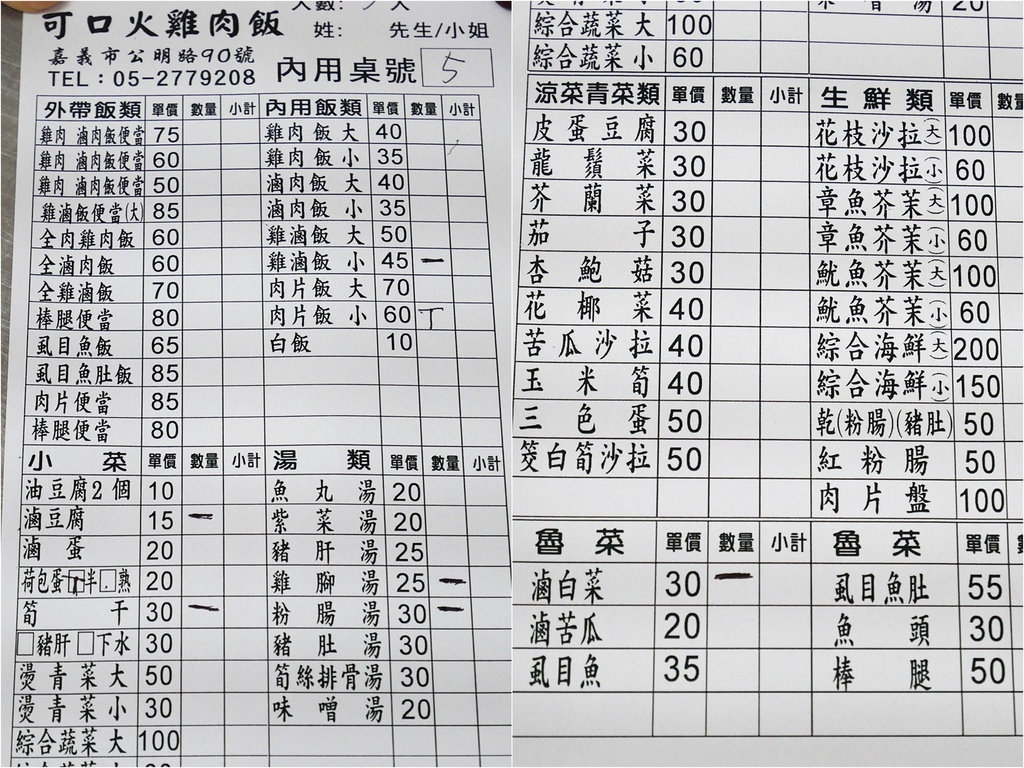 可口火雞肉飯
姓: 先生/小姐
嘉義市公明路90號
TEL:05-2779208
內用桌號 5
外帶飯類 單價 數量 小計 內用飯類 單價 數量 小計
雞肉 滷肉飯便當 75 雞肉飯大 40
雞肉 滷肉飯便當 60 雞肉飯小 35
雞肉 滷肉飯便當 50 滷肉飯大 40
雞滷飯便當(大) 85 滷肉飯小 35
全肉雞肉飯 60 雞滷飯大 50
全滷肉飯 60 雞滷飯小 45 一
全雞滷飯 70 肉片飯大 70
棒腿便當 80 肉片飯小 60 T
虱目魚飯 65 白飯 10
虱目魚肚飯 85
肉片便當 85
棒腿便當 80
小菜 單價 數量 小計 湯類 單價 數量 小計
油豆腐2個 10 魚丸湯 20
滷豆腐 15 一 紫菜湯 20
滷蛋 20 豬肝湯 25
荷包蛋 半.熟 20 雞腳湯 25 一
筍干 30 一 粉腸湯 30 一
□豬肝 □下水 30 豬肚湯 30
燙青菜大 50 筍絲排骨湯 30
燙青菜小 30 味噌湯 20
綜合蔬菜大 100
綜合蔬菜大 100
綜合蔬菜小 60
涼菜青菜類 單價 數量 小計 生鮮類 單價
皮蛋豆腐 30 花枝沙拉(大) 100
龍鬚菜 30 花枝沙拉(小) 60
芥蘭菜 30 章魚芥茉(大) 100
茄子 30 章魚芥茉(小) 60
杏鮑菇 30 魷魚芥茉(大) 100
花椰菜 40 魷魚芥茉(小) 60
苦瓜沙拉 40 綜合海鮮(大) 200
玉米筍 40 綜合海鮮(小) 150
三色蛋 50 乾(粉腸)(豬肚) 50
筊白筍沙拉 50 紅粉腸 50
肉片盤 100
魯菜 單價 數量 小計 魯菜 單價
滷白菜 30 一 虱目魚肚 55
滷苦瓜 20 魚頭 30
虱目魚 35 棒腿 50